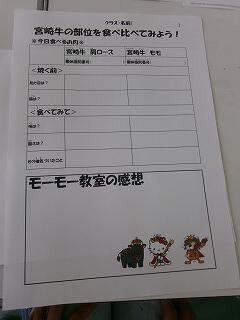 クラス・名前(
宮崎牛の部位を食べ比べてみよう！
※今日食べるお肉※
宮崎牛 肩ロース 宮崎牛 モモ
(個体識別番号: ) (個体識別番号: )
＜焼く前＞
見た目は？
＜食べてみて＞
味は？
固さは？
その他気づいたこと
モーモー教室の感想